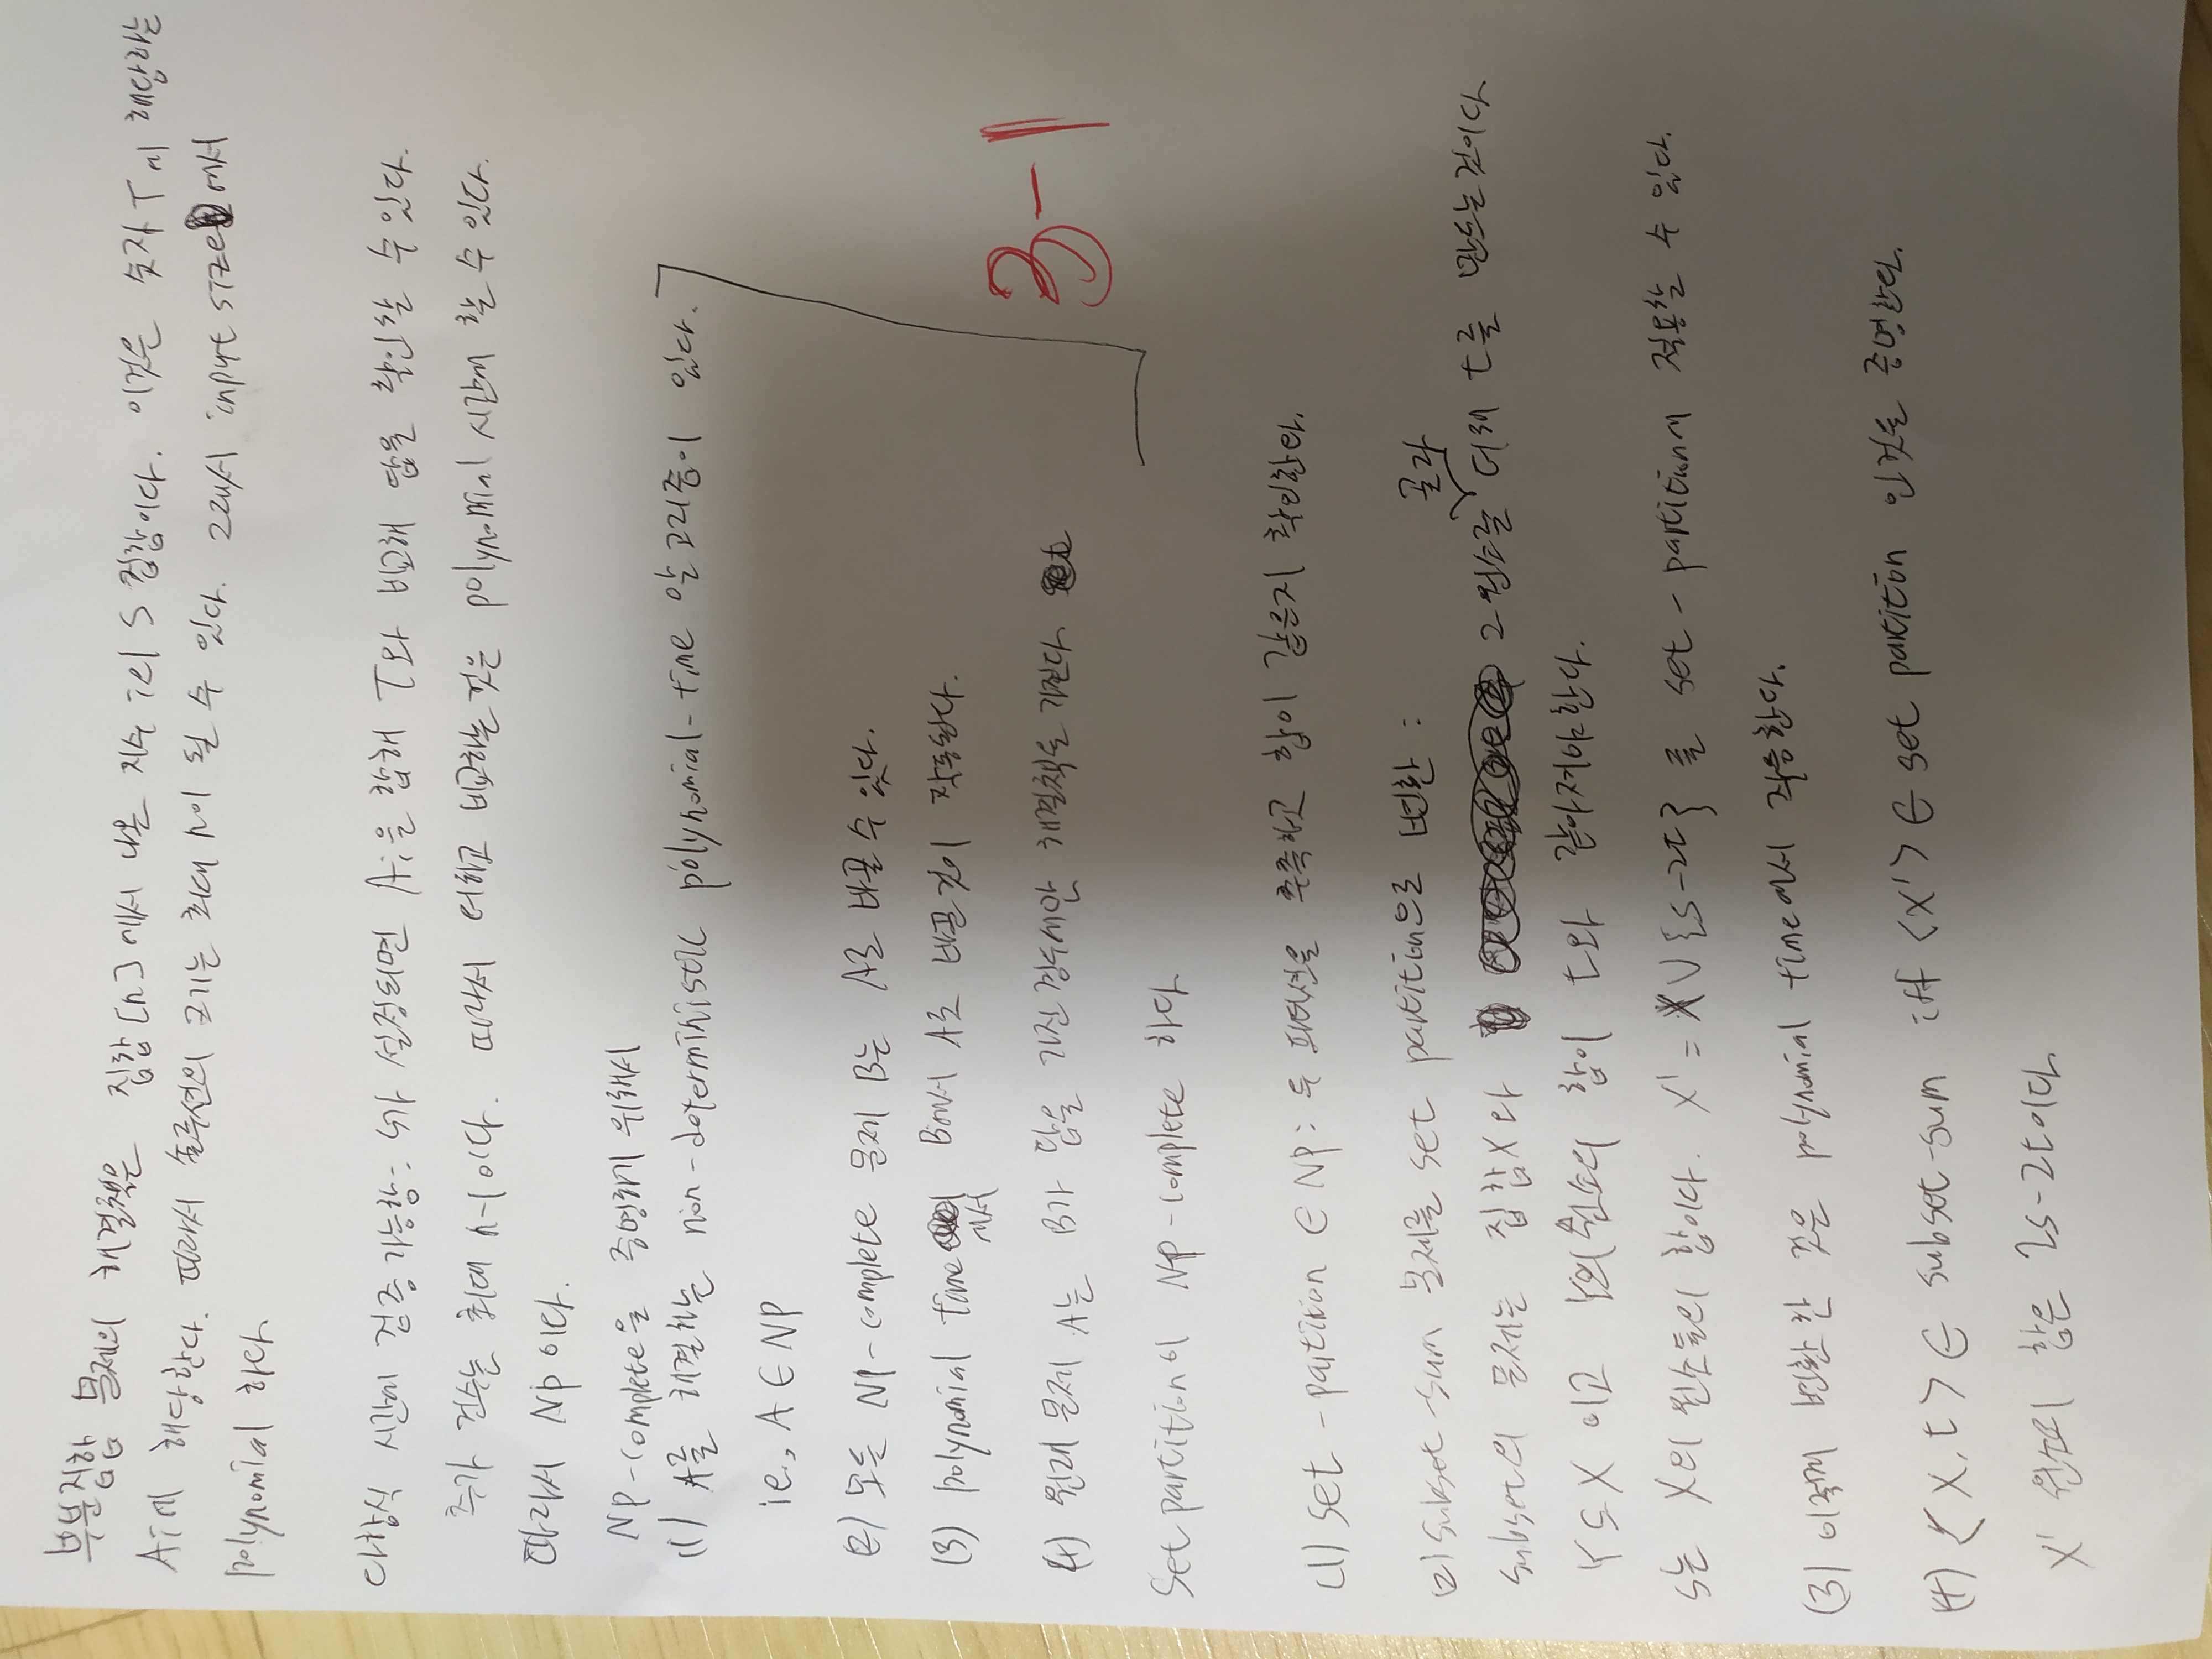 부분집합 문제의 해결책은 집합 [n]에서 나온 지수 i의 S 집합이다. 이것은 숫자 T에 해당하는
Ai에 해당한다. 따라서 솔루션의 크기는 최대 n이 될 수 있다. 그래서 input size에서
polynomial 하다.
다항식 시간에 검증가능함: S가 설정되면 Ai을 합해 T와 비교해 답을 확인할 수 있다.
추가 건수는 최대 n-1이다. 따라서 더하고 비교하는 것은 polynomial 시간에 할 수 있다.
따라서 NP이다.
NP-complete을 증명하기 위해서
(1) A를 해결하는 non-deterministic polynomial-time 알고리즘이 있다.
ie., A ∈ NP
(2) 모든 NP-complete 문제 B는 A로 바꿀 수 있다.
(3) polynomial time에서 B에서 A로 바꾼것이 작동한다.
(4) 원래 문제 A는 B가 답을 가진 경우에만 해결책을 가진다.
3-1
Set partition이 NP-complete 하다.
(1) set-partition ∈ NP: 두 파티션을 추측하고 합이 같은지 확인한다.
(2) subset-sum 문제를 set partition으로 변환:
subset의 문제는 집합 X와 그 원소를 골라 더해 t를 만드는것이다
Y ⊆ X 이고 Y의 원소의 합이 t와 같아져야한다.
S는 X의 원소들의 합이다. X' = X ∪ {S-2t} 를 set-partition에 적용할 수 있다.
(3) 이렇게 변환한 것은 polynomial time에서 작동한다.
(4) <X, t> ∈ subset-sum iff <X'> ∈ set partition 인것을 증명한다.
X' 원소의 합은 2s-2t이다.